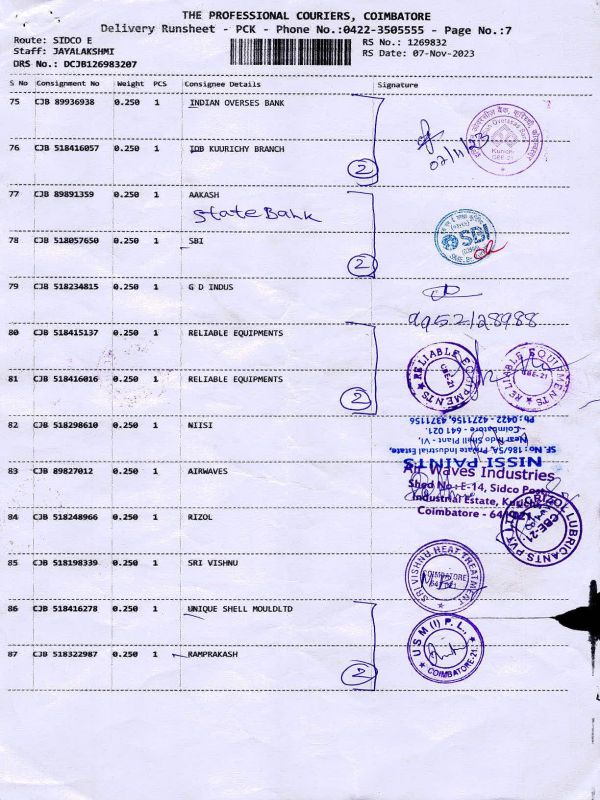 THE PROFESSIONAL COURIERS, COIMBATORE
Delivery Runsheet - PCK - Phone No.:0422-3505555 - Page No.:7
Route: SIDCO E
RS No.: 1269832
Staff: JAYALAKSHMI
RS Date: 07-Nov-2023
DRS No.: DCJB126983207
S No Consignment No Weight PCS Consignee Details Signature
75 CJB 89936938 0.250 1 INDIAN OVERSES BANK
76 CJB 518416057 0.250 1 IOB KUURICHY BRANCH
2
77 CJB 89891359 0.250 1 AAKASH
State Bank
78 CJB 518057650 0.250 1 SBI
SBI
2
79 CJB 518234815 0.250 1 G D INDUS
80 CJB 518415137 0.250 1 RELIABLE EQUIPMENTS
RELIABLE EQUIPMENTS CBE-21
RELIABLE EQUIPMENTS CBE-21
81 CJB 518416016 0.250 1 RELIABLE EQUIPMENTS
2
82 CJB 518298610 0.250 1 NIISI
NISSI PAINTS
SF. No: 186/5A, Private Industrial Estate,
Coimbatore - 641 021.
Ph: 0422 - 4271156, 4371156
83 CJB 89827012 0.250 1 AIRWAVES
Waves Industries
Shed No: E-14, Sidco
Industrial Estate,
Coimbatore -
84 CJB 518248966 0.250 1 RIZOL
RIZOL LUBRICANTS PVT LTD CBE-21
85 CJB 518198339 0.250 1 SRI VISHNU
SRI VISHNU HEAT TREATMENT
COIMBATORE
641 021
86 CJB 518416278 0.250 1 UNIQUE SHELL MOULDLTD
U S M (I) P. L., COIMBATORE-21.
87 CJB 518322987 0.250 1 RAMPRAKASH
2